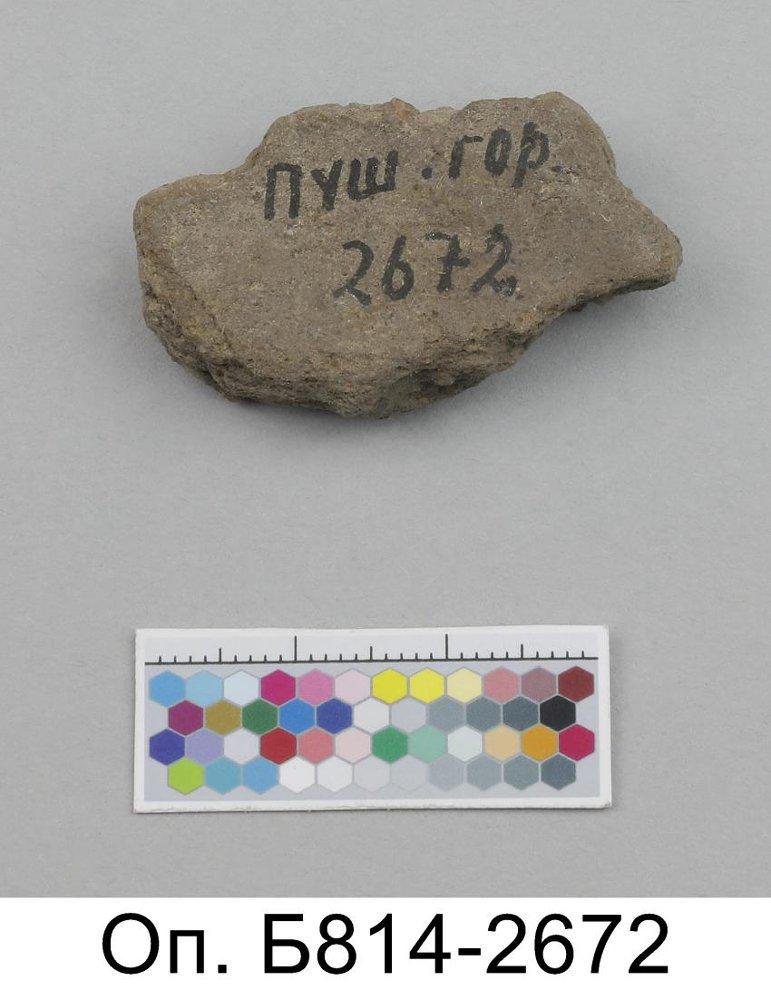 пуш. гор.
2672
Оп. Б814-2672